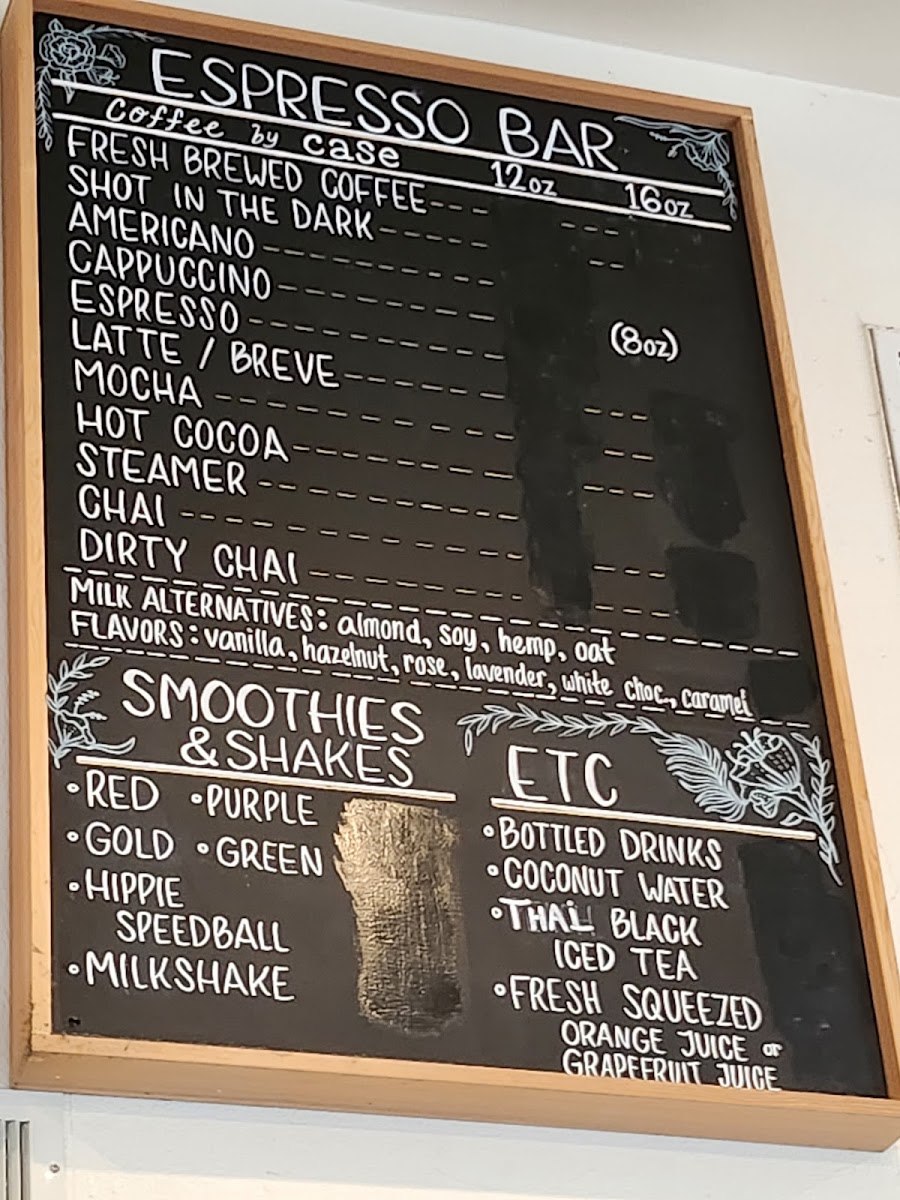 ESPRESSO BAR
coffee by case
12oz 16oz
FRESH BREWED COFFEE--- ---
SHOT IN THE DARK----- --
AMERICANO---------
CAPPUCCINO--------
ESPRESSO--------- (8oz)
LATTE / BREVE------ ---
MOCHA ---------- --
HOT COCOA-------- ---
STEAMER ---------
CHAI ------------ ---
DIRTY CHAI ------- ---
MILK ALTERNATIVES: almond, soy, hemp, oat
FLAVORS: vanilla, hazelnut, rose, lavender, white choc., caramel
SMOOTHIES
& SHAKES
•RED •PURPLE
•GOLD •GREEN
•HIPPIE
SPEEDBALL
•MILKSHAKE
ETC
•BOTTLED DRINKS
•COCONUT WATER
•THAI BLACK
ICED TEA
•FRESH SQUEEZED
ORANGE JUICE or
GRAPEFRUIT JUICE